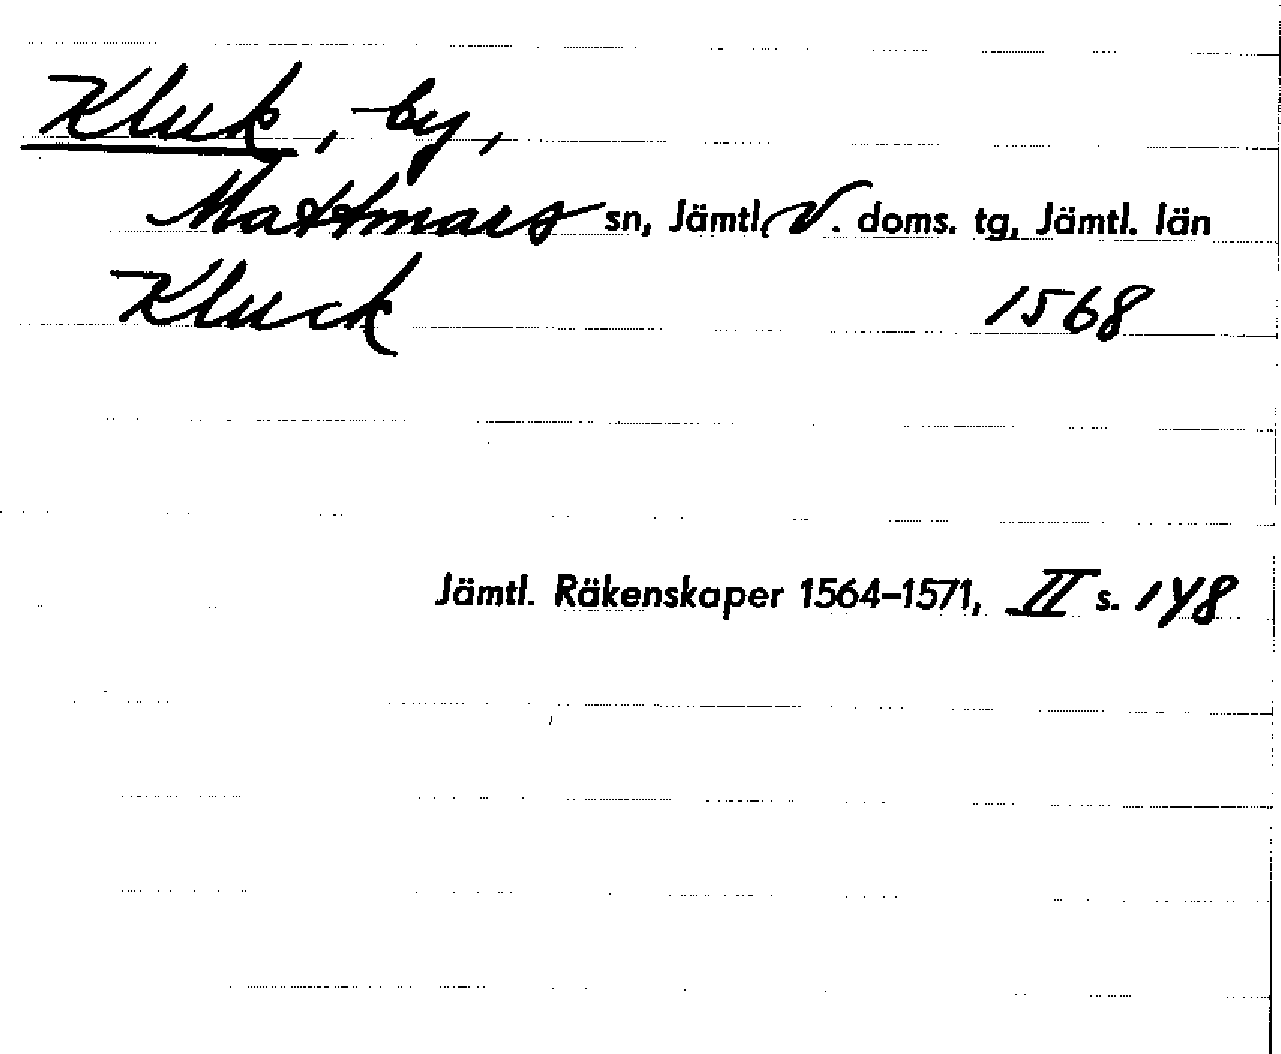 Kluk, by,
Mattmars sn, Jämtl. V. doms. tg, Jämtl. län
Kluck 1568
Jämtl. Räkenskaper 1564–1571, II s. 148